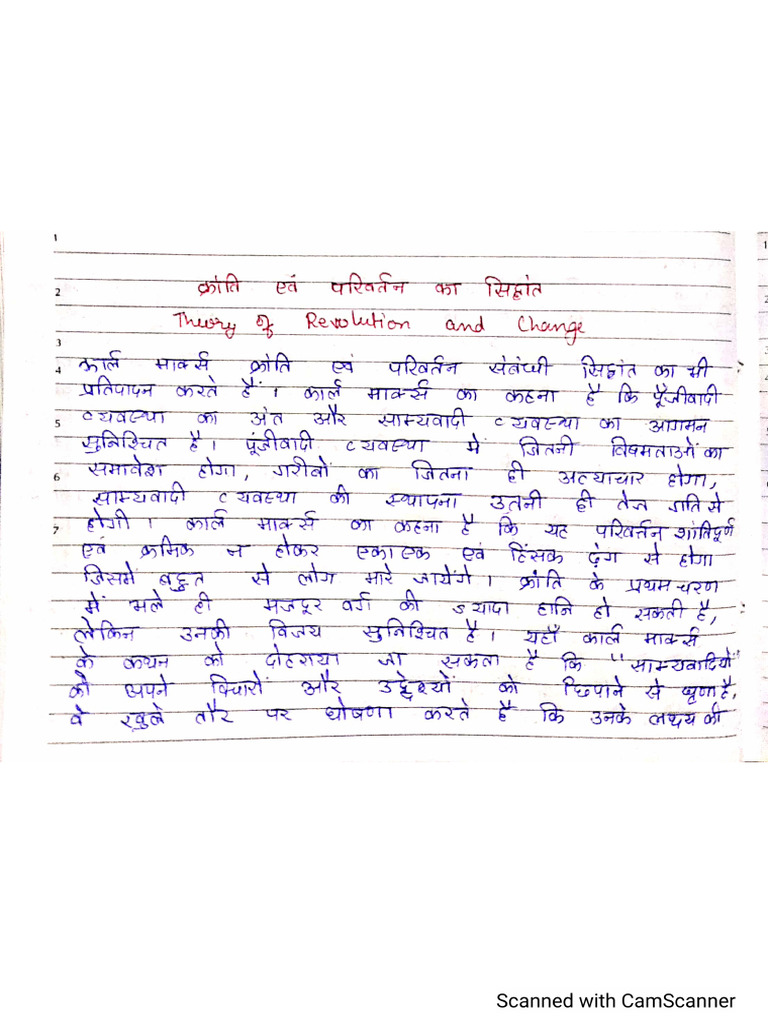 1
2 क्रांति एवं परिवर्तन का सिद्धांत
Theory of Revolution and Change
3
4 कार्ल मार्क्स क्रांति एवं परिवर्तन संबंधी सिद्धांत का भी
प्रतिपादन करते हैं। कार्ल मार्क्स का कहना है कि पूँजीवादी
5 व्यवस्था का अंत और साम्यवादी व्यवस्था का आगमन
सुनिश्चित है। पूंजीवादी व्यवस्था मे जितनी विषमताओं का
6 समावेश होगा, गरीबों का जितना ही अत्याचार होगा,
साम्यवादी व्यवस्था की स्थापना उतनी ही तेज गति से
7 होगी। कार्ल मार्क्स का कहना है कि यह परिवर्तन शांतिपूर्ण
एवं क्रमिक न होकर एकाएक एवं हिंसक ढंग से होगा
जिसमे बहुत से लोग मारे जायेंगे। क्रांति के प्रथम चरण
में भले ही मजदूर वर्ग की ज्यादा हानि हो सकती है,
लेकिन उनकी विजय सुनिश्चित है। यहाँ कार्ल मार्क्स
के कथन को दोहराया जा सकता है कि "साम्यवादियों"
को अपने विचारों और उद्देश्यों को छिपाने से घृणा है,
वे खुले तौर पर घोषणा करते है कि उनके लक्ष्य की
1
Scanned with CamScanner